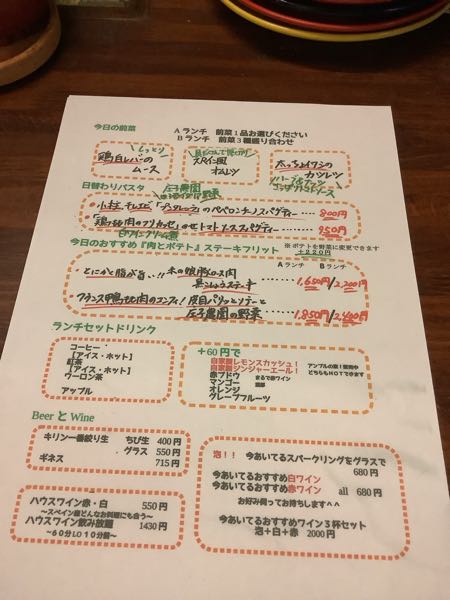 今日の前菜
Aランチ 前菜1品お選びください
Bランチ 前菜3種盛り合わせ
しっとり
鶏白レバーの
ムース
スペイン風
オムレツ
太っちょイワシの
カツレツ
日替わりパスタ
庄子農園
のペペロンチーノスパゲティー 800円
のせトマトソーススパゲティー 950円
今日のおすすめ『肉とポテト』ステーキフリット ※ポテトを野菜に変更できます
+220円
Aランチ Bランチ
とにかく脂が旨い!!
黒こしょうステーキ 1,650円/2,200円
フランス鴨もも肉のコンフィ/皮目パリッとソテーと
庄子農園の野菜 1,850円/2,400円
ランチセットドリンク
コーヒー
【アイス・ホット】
紅茶
【アイス・ホット】
ウーロン茶
アップル
+60円で
自家製レモンスカッシュ!
自家製ジンジャーエール!
赤ブドウ まるで赤ワイン
マンゴー 濃厚
オレンジ
グレープフルーツ
どちらもHOTできます
Beer と Wine
キリン一番絞り生 ちび生 400円
グラス 550円
ギネス 715円
ハウスワイン赤・白 550円
~スペイン産どんなお料理にも合う~
ハウスワイン飲み放題 1430円
~60分LO10分前~
泡!! 今あいてるスパークリングをグラスで
680円
今あいてるおすすめ白ワイン
今あいてるおすすめ赤ワイン all 680円
お好み伺ってお持ちします^^
今あいてるおすすめワイン3杯セット
泡+白+赤 2000円